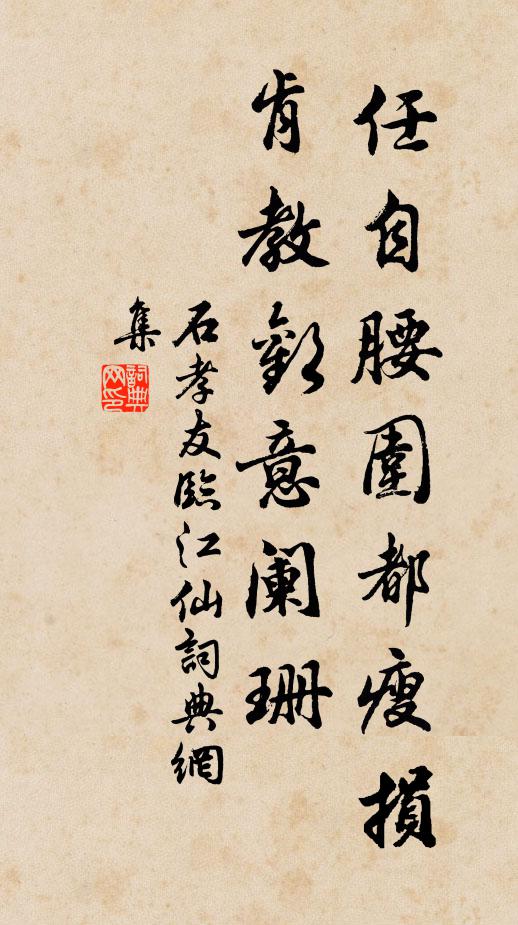 任自腰圍都瘦損
肯教歡意阑珊
石孝友臨江仙詞典網
集
詞典網印